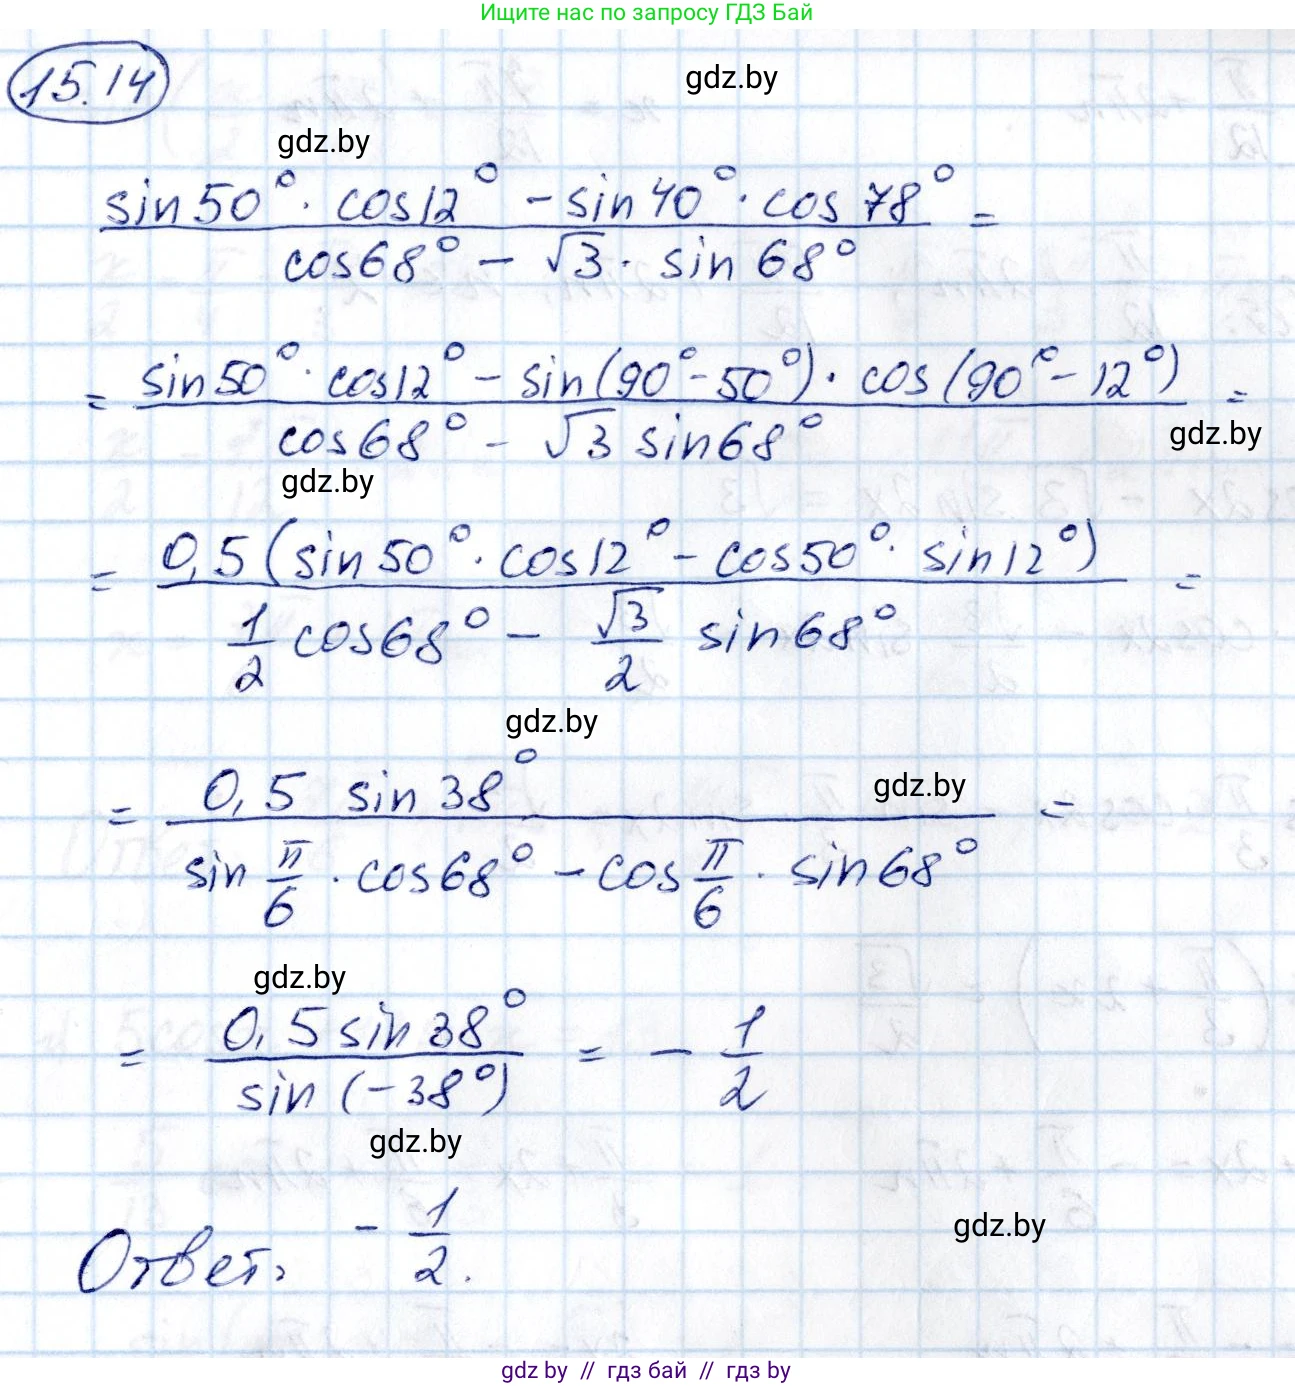 Ищите нас по запросу ГДЗ Бай
15.14
gdz.by
gdz.by
sin50° · cos12° - sin40° · cos78° / cos68° - √3 · sin68° =
= sin50° · cos12° - sin(90° - 50°) · cos(90° - 12°) / cos68° - √3 sin68° =
gdz.by
gdz.by
= 0,5(sin50° · cos12° - cos50° · sin12°) / 1/2 cos68° - √3/2 sin68° =
gdz.by
gdz.by
= 0,5 sin38° / sin π/6 · cos68° - cos π/6 · sin68° =
gdz.by
= 0,5 sin38° / sin(-38°) = - 1/2
gdz.by
gdz.by
Ответ: - 1/2.
gdz.by // гдз бай // гдз by